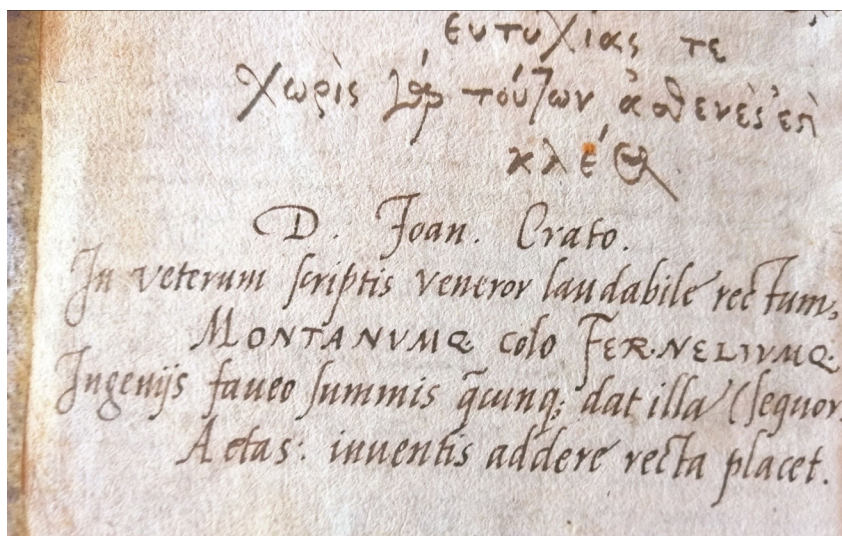 εὐτυχίας τε
χωρὶς γὰρ τούτων ἀσθενὲς ἐπὶ
κλέος
D. Joan. Crato.
In veterum scriptis veneror laudabile rectum,
MONTANVMQ. colo FERNELIVMQ.
Ingenijs faueo summis q̄cunq; dat illa (sequor.
Aetas: inuentis addere recta placet.